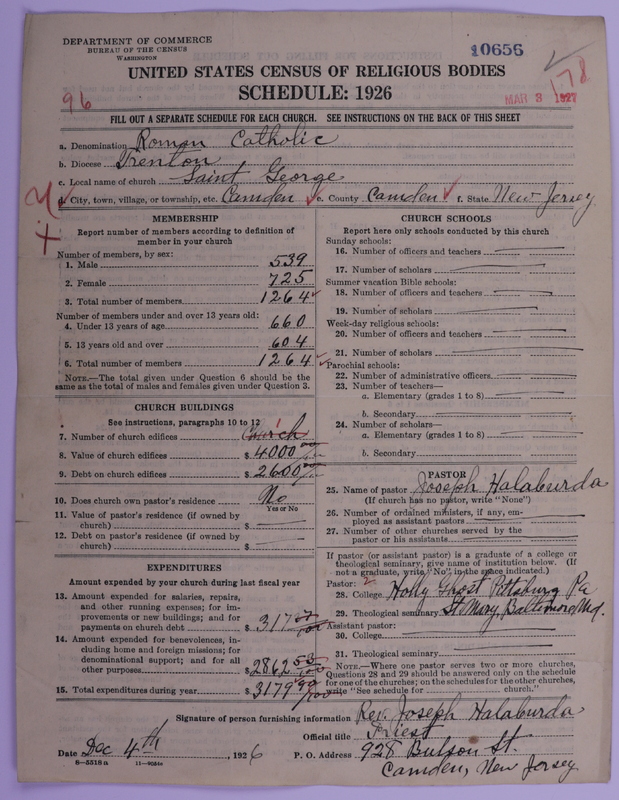 DEPARTMENT OF COMMERCE
BUREAU OF THE CENSUS
WASHINGTON
10656
178
96
MAR 3 1927
UNITED STATES CENSUS OF RELIGIOUS BODIES
SCHEDULE: 1926
FILL OUT A SEPARATE SCHEDULE FOR EACH CHURCH. SEE INSTRUCTIONS ON THE BACK OF THIS SHEET
a. Denomination Roman Catholic
b. Diocese Trenton
c. Local name of church Saint George
d. City, town, village, or township, etc. Camden e. County Camden f. State New-Jersey
MEMBERSHIP
Report number of members according to definition of
member in your church
Number of members, by sex:
1. Male 539
2. Female 725
3. Total number of members 1264
Number of members under and over 13 years old:
4. Under 13 years of age 660
5. 13 years old and over 604
6. Total number of members 1264
NOTE.—The total given under Question 6 should be the
same as the total of males and females given under Question 3.
CHURCH BUILDINGS
See instructions, paragraphs 10 to 12
7. Number of church edifices Church
8. Value of church edifices $ 4000
9. Debt on church edifices $ 2600
10. Does church own pastor's residence No
Yes or No
11. Value of pastor's residence (if owned by
church) $
12. Debt on pastor's residence (if owned by
church) $
EXPENDITURES
Amount expended by your church during last fiscal year
13. Amount expended for salaries, repairs,
and other running expenses; for im-
provements or new buildings; and for
payments on church debt $ 317
14. Amount expended for benevolences, in-
cluding home and foreign missions; for
denominational support; and for all
other purposes $ 2862 53/100
15. Total expenditures during year $ 3179 90/100
CHURCH SCHOOLS
Report here only schools conducted by this church
Sunday schools:
16. Number of officers and teachers
17. Number of scholars
Summer vacation Bible schools:
18. Number of officers and teachers
19. Number of scholars
Week-day religious schools:
20. Number of officers and teachers
21. Number of scholars
Parochial schools:
22. Number of administrative officers
23. Number of teachers—
a. Elementary (grades 1 to 8)
b. Secondary
24. Number of scholars—
a. Elementary (grades 1 to 8)
b. Secondary
PASTOR
25. Name of pastor Joseph Halaburda
(If church has no pastor, write "None")
26. Number of ordained ministers, if any, em-
ployed as assistant pastors
27. Number of other churches served by the
pastor or his assistants
If pastor (or assistant pastor) is a graduate of a college or
theological seminary, give name of institution below. (If
not a graduate, write "No" in the space indicated.)
Pastor: 2
28. College Holly Ghost Pittsburg Pa
29. Theological seminary St Mary Baltimore Md.
Assistant pastor:
30. College
31. Theological seminary
NOTE.—Where one pastor serves two or more churches,
Questions 28 and 29 should be answered only on the schedule
for one of the churches; on the schedules for the other churches,
write "See schedule for church."
Signature of person furnishing information Rev. Joseph Halaburda
Official title Priest
Date Dec 4th, 1926 P. O. Address 928 Bulson St.
8—5518a
Camden, New Jersey